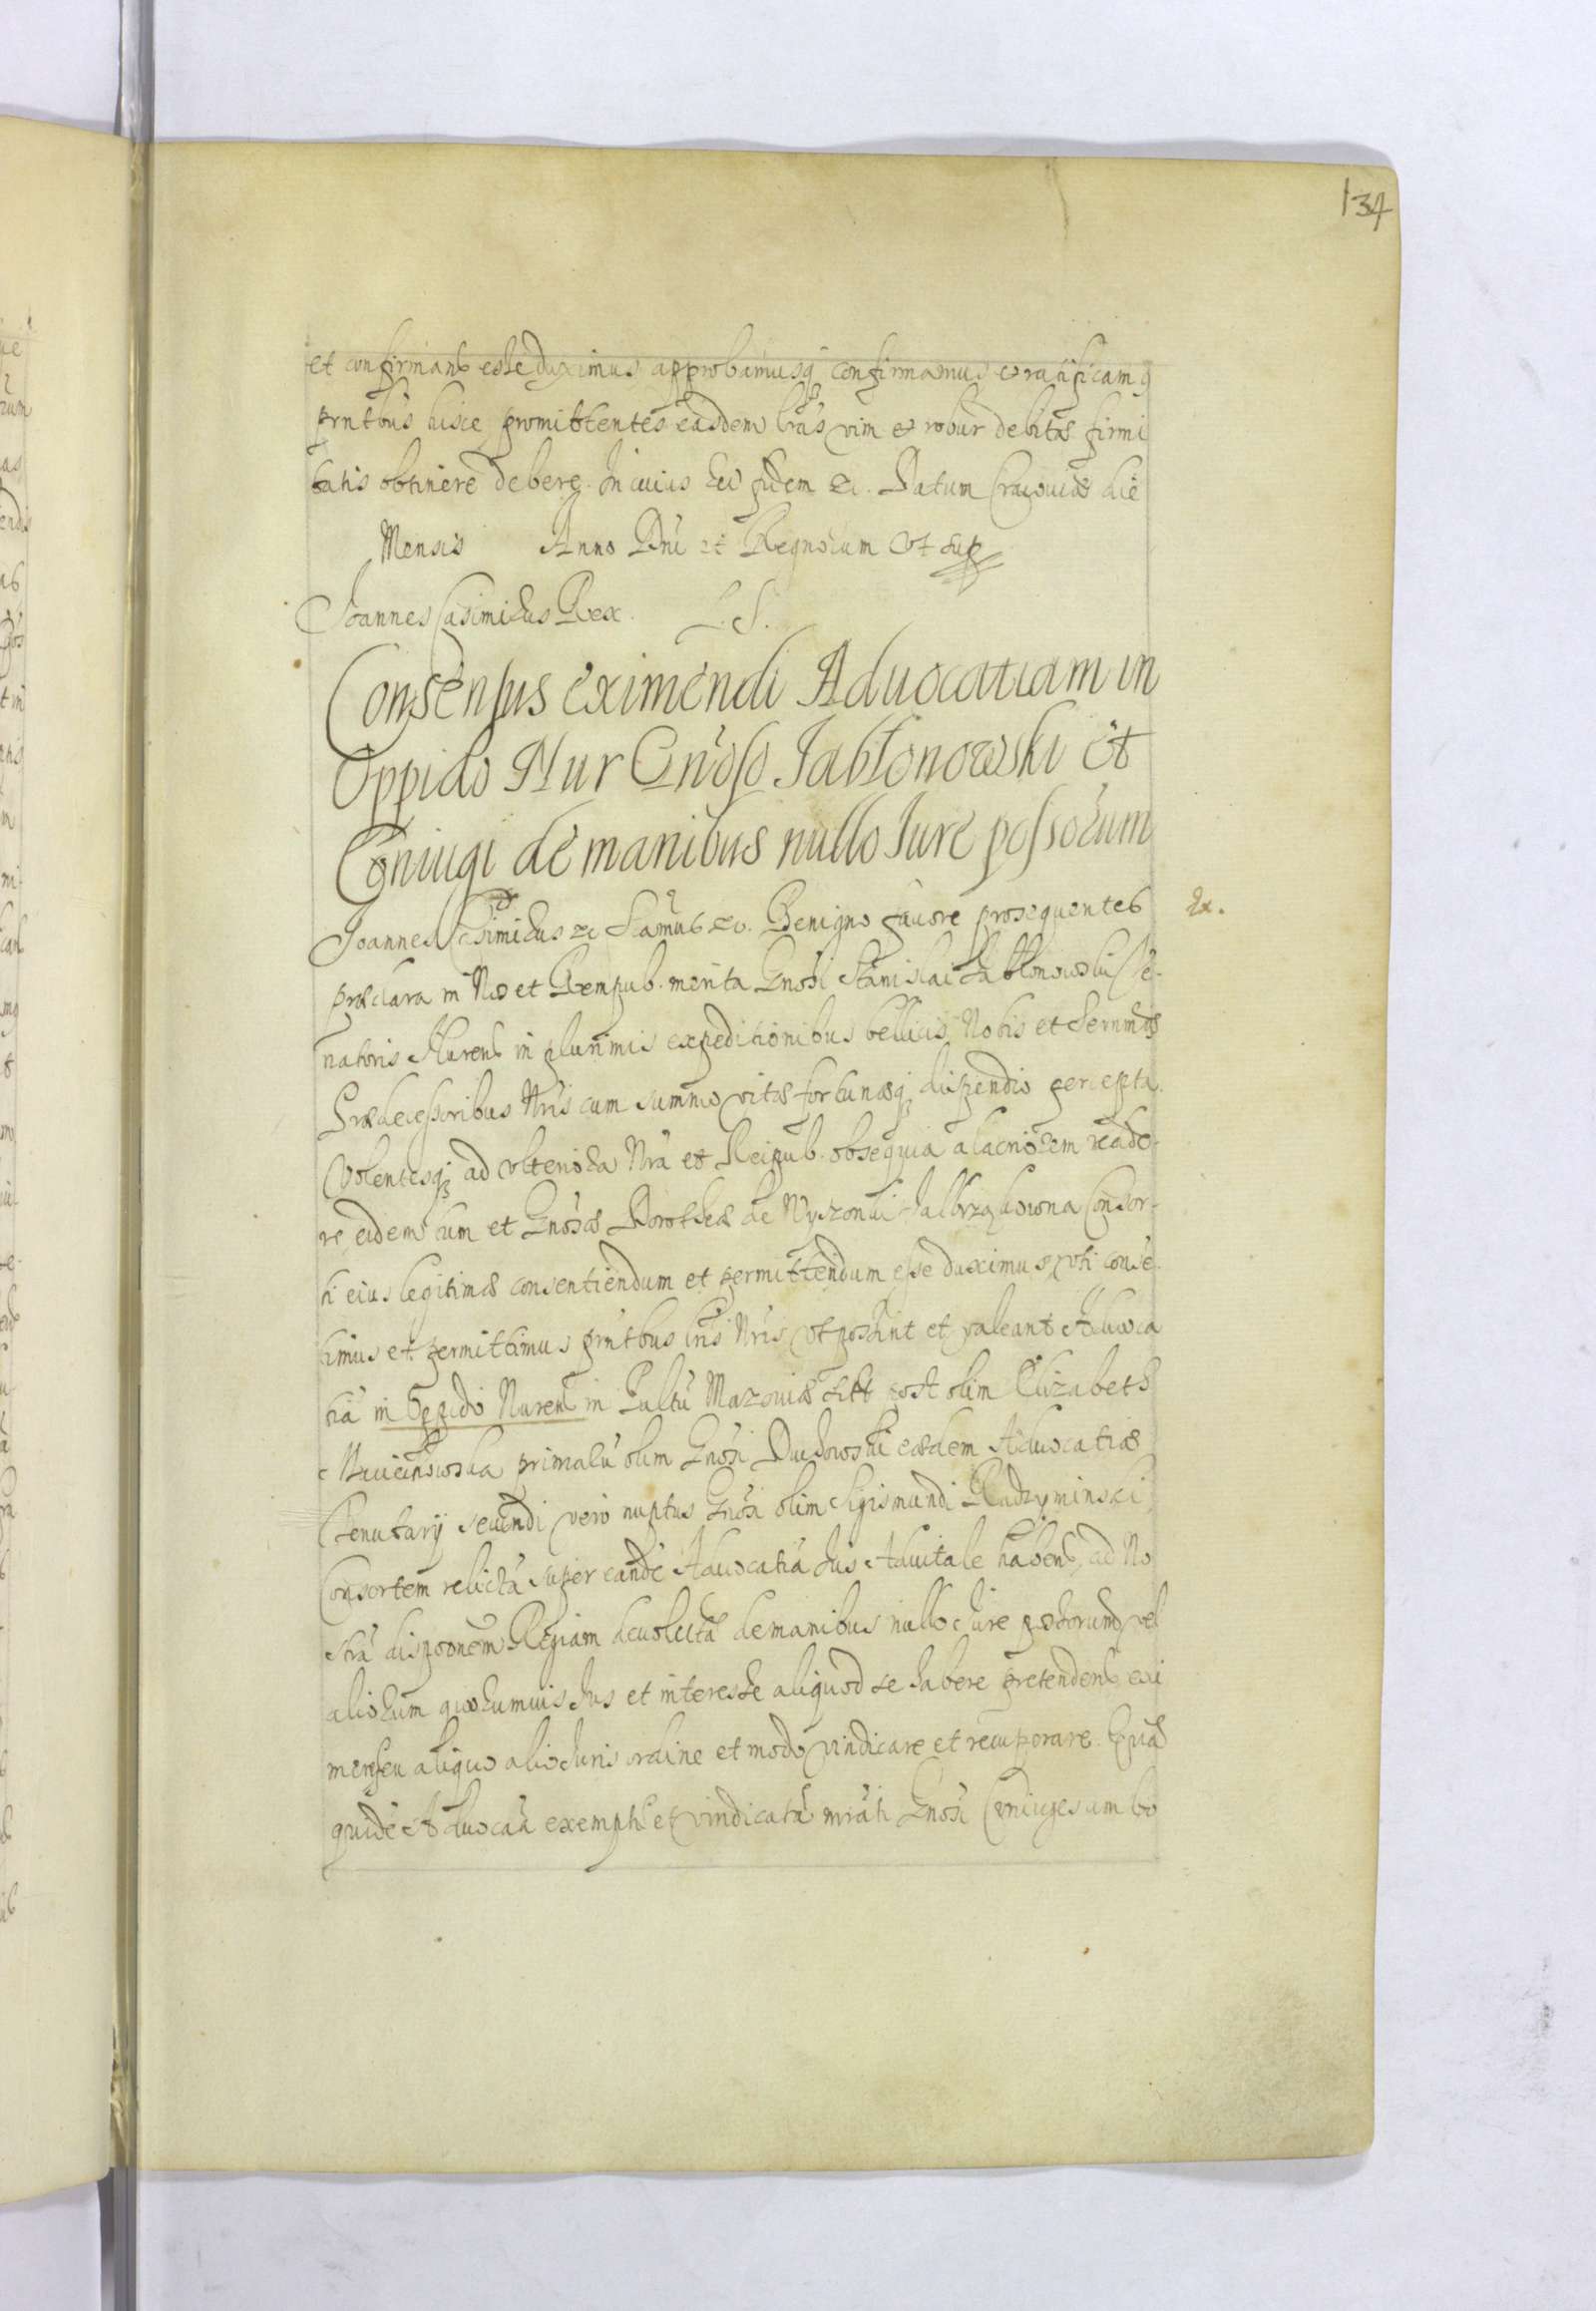 134
et confirmand esse duximus approbamusq confirmamus et ratificamq
prntbus hisce promittentes easdem lras vim et robur debitæ firmi
tatis obtinere debere. In cuius rei fidem &c. Datum Cracoviæ die
Mensis Anno Dni et Regnorum Vt sup
Joannes Casimirus Rex. L. S.
Consensus eximendi Aduocatiam in
Oppido Nur Gnoso Jabłonowski et
Coniugi de manibus nullo Jure possorum
Joannes Casimirus &c Signamus &c. Benigno favore prosequentes
præclara in Nos et Rempub. merita Gnosi Stanislai Jabłonowski Ve-
natoris Nurens in plurimis expeditionibus bellicis Nobis et Sernmis
Prædecessoribus Nris cum summo vitæ fortunæq dispendio percepta.
Volentesq ad vlteriora Nra et Reipub. obsequia alacriorem redde-
re, eidem cum et Gnosæ Dorotheæ de Wyszonki Consor-
ti eius legitimæ consentiendum et permittendum esse duximus, vti conse-
timus et permittimus prntbus lris Nris, vt possint et valeant Aduoca
tiã in Oppido Nurens in Paltu Mazoviæ sitt post olim Elizabeth
primalu olim Gnosi Duchowski eiusdem Aduocatiæ
Tenutarij secundi vero nuptus Gnosi olim Sigismundi Radzyminski
Consortem relictã super eandē Aduocatiã Jus Aduitale habens, ad No
strã disponem Regiam deuolutã de manibus nullo Jure possorum vel
aliorum quorumuis Jus et interesse aliquod se habere pretendens exi
mere seu aliquo alio Juris ordine et modo vindicare et recuperare. Quã
quidē Aduocatiã exemptã et vindicatã mrati Gnosi Coniuges ambo
Ex.